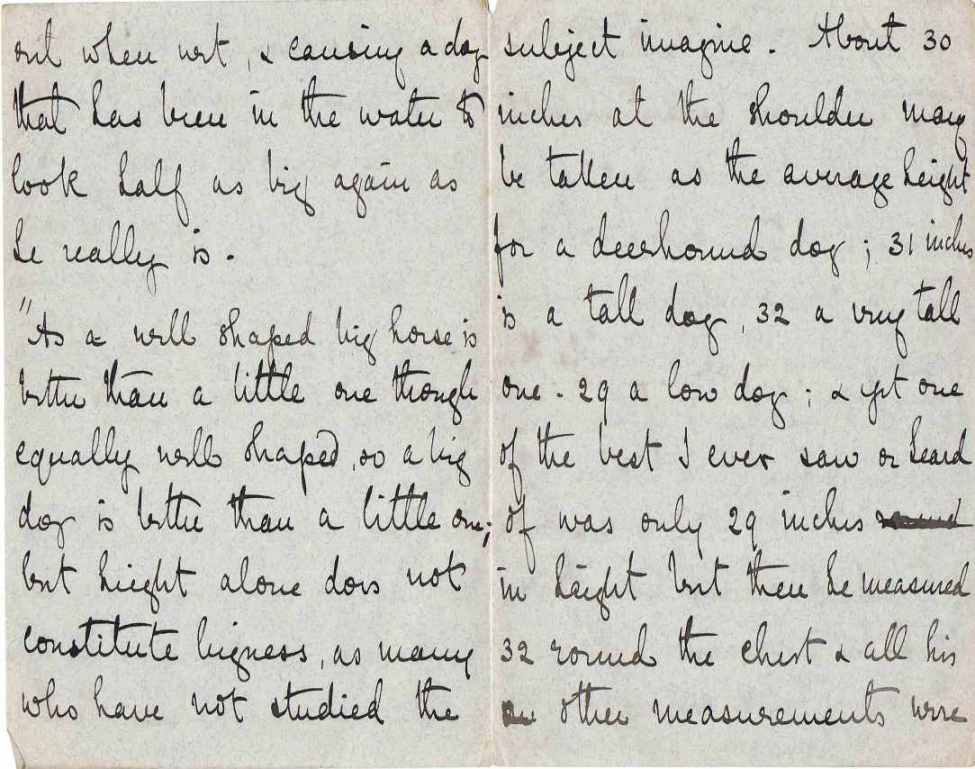 out when wet, & causing a dog
that has been in the water to
look half as big again as
he really is.
"As a well shaped big horse is
better than a little one though
equally well shaped, so a big
dog is better than a little one;
but height alone does not
constitute bigness, as many
who have not studied the
subject imagine. About 30
inches at the shoulder may
be taken as the average height
for a deerhound dog; 31 inches
is a tall dog, 32 a very tall
one. 29 a low dog; & yet one
of the best I ever saw or heard
of was only 29 inches round
in height but then he measured
32 round the chest & all his
other measurements were